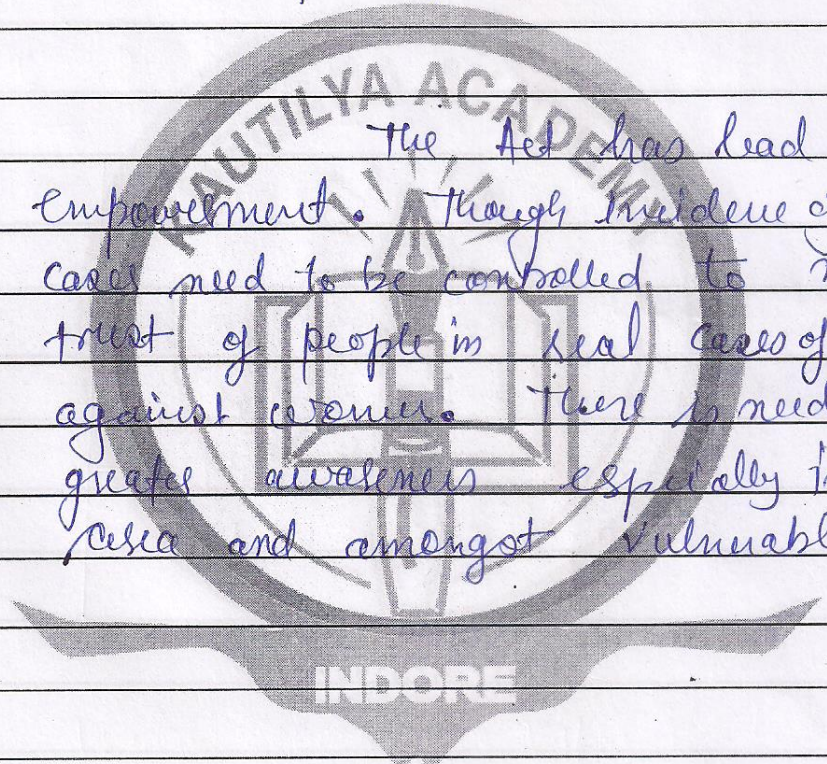 KAUTILYA ACADEMY
The Act has lead
empowerment. Though incidence
cases need to be controlled to
trust of people in real cases of
against women. There is need
greater awareness espcially
area and amongst vulnerabl
INDORE